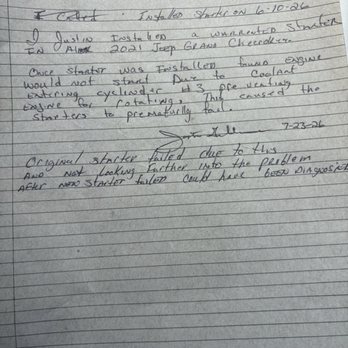 Installed Starter on 6-10-26
I Justin Installed a warrented Starter
IN A 2021 Jeep Grand Cheerokee.
Once Starter was Installed found ENgine
would not start Due to Coolant
Entering cylinder #3 preventing
Engine for rotating. This caused the
Starters to prematurly fail.
7-23-26
Original starter failed due to this
AND Not Looking Further into the problem
AFter new Starter failed could have been Diagnosed